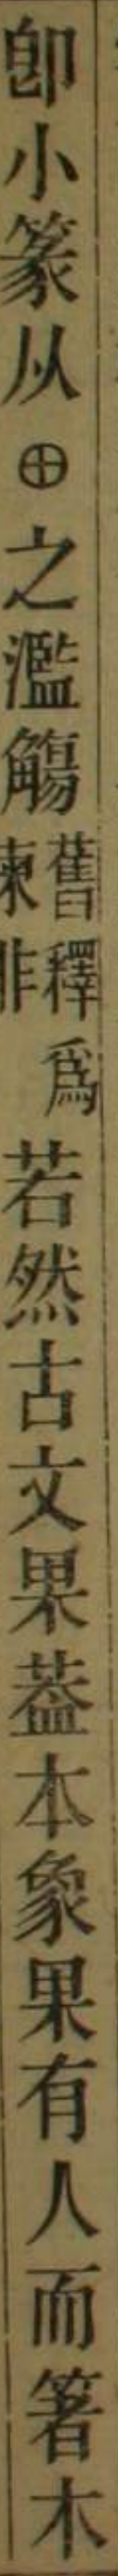 卽小篆从⊕之濫觴舊釋爲𣐺非若然古文果葢本象果有人而箸木